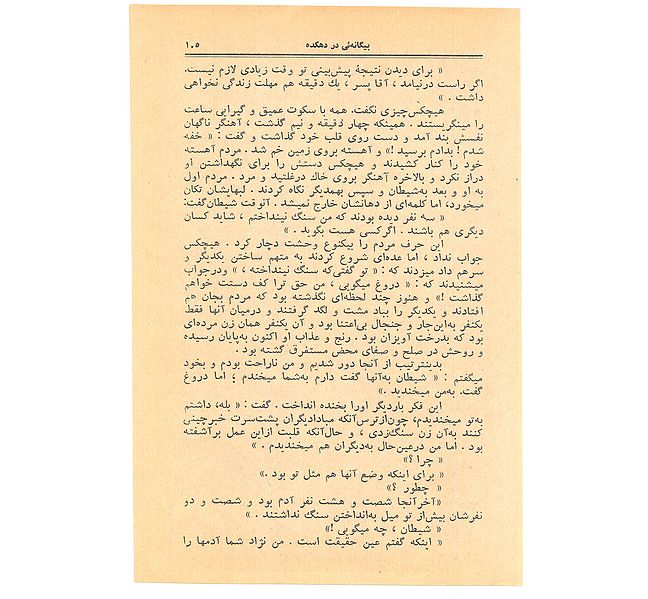 بیگانه‌ئی در دهکده
۱۰۵
« برای دیدن نتیجهٔ پیش‌بینی تو وقت زیادی لازم نیست.
اگر راست درنیامد ، آقا پسر ، یك دقیقه هم مهلت زندگی نخواهی
داشت . »
هیچکس‌چیزی نگفت. همه با سکوت عمیق و گیرایی ساعت
را مینگریستند . همینکه چهار دقیقه و نیم گذشت ، آهنگر ناگهان
نفسش بند آمد و دست روی قلب خود گذاشت و گفت : « خفه
شدم ! بدادم برسید !» و آهسته بروی زمین خم شد . مردم آهسته
خود را کنار کشیدند و هیچکس دستش را برای نگهداشتن او
دراز نکرد و بالاخره آهنگر بروی خاك درغلتید و مرد . مردم اول
به او و بعد به‌شیطان و سپس بهمدیگر نگاه کردند . لبهایشان تکان
میخورد، اما کلمه‌ای از دهانشان خارج نمیشد . آنوقت شیطان‌گفت:
« سه نفر دیده بودند که من سنگ نینداختم ، شاید کسان
دیگری هم باشند . اگرکسی هست بگوید . »
این حرف مردم را بیکنوع وحشت دچار کرد . هیچکس
جواب نداد ، اما عده‌ای شروع کردند به متهم ساختن یکدیگر و
سرهم داد میزدند که : « تو گفتی‌که سنگ نینداخته ، » ودرجواب
میشنیدند که : « دروغ میگویی ، من حق ترا کف دستت خواهم
گذاشت !» و هنوز چند لحظه‌ای نگذشته بود که مردم بجان هم
افتادند و یکدیگر را بباد مشت و لگد گرفتند و درمیان آنها فقط
یکنفر به‌این‌جار و جنجال بی‌اعتنا بود و آن یکنفر همان زن مرده‌ای
بود که بدرخت آویزان بود . رنج و عذاب او اکنون به‌پایان رسیده
و روحش در صلح و صفای محض مستغرق گشته بود .
بدینترتیب از آنجا دور شدیم و من ناراحت بودم و بخود
میگفتم : « شیطان به‌آنها گفت دارم به‌شما میخندم ؛ اما دروغ
گفت. به‌من میخندید .»
این فکر باردیگر اورا بخنده انداخت . گفت : « بله، داشتم
به‌تو میخندیدم، چون‌ازترس‌آنکه مبادادیگران پشت‌سرت خبرچینی
کنند به‌آن زن سنگ‌زدی ، و حال‌آنکه قلبت ازاین عمل برآشفته
بود . اما من درعین‌حال به‌دیگران هم میخندیدم . »
« چرا ؟»
« برای اینکه وضع آنها هم مثل تو بود .»
« چطور ؟»
«آخرآنجا شصت و هشت نفر آدم بود و شصت و دو
نفرشان بیش‌از تو میل به‌انداختن سنگ نداشتند . »
« شیطان ، چه میگویی !»
« اینکه گفتم عین حقیقت است . من نژاد شما آدمها را